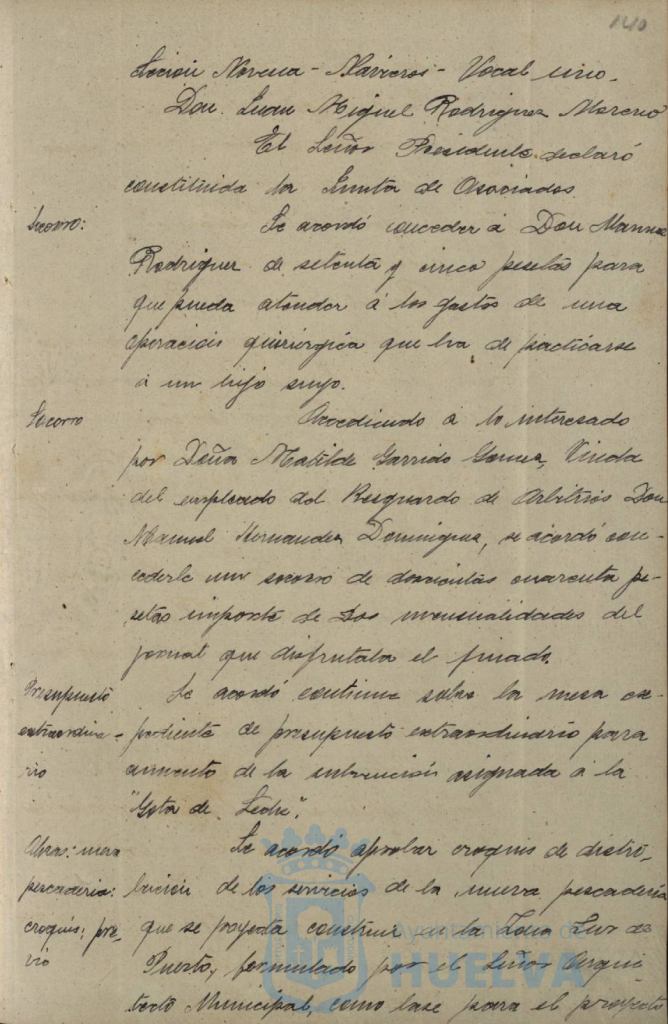 140
Sección Novena - Navieros - Vocal uno.
Don Juan Miguel Rodriguez Moreno
El Señor Presidente declaró
constituida la Junta de Asociados.
Socorro:
Se acordó conceder á Don Manuel
Rodriguez de setenta y cinco pesetas para
que pueda atender á los gastos de una
operación quirúrgica que ha de practicarse
á un hijo suyo.
Socorro
Accediendo á lo interesado
por Doña Matilde Garrido Gomez, Viuda
del empleado del Resguardo de Arbitrios Don
Manuel Hernandez Dominguez, se acordó con-
cederle un socorro de doscientas cuarenta pe-
setas importe de dos mensualidades del
jornal que disfrutaba el finado.
Presupuesto
extraordina-
rio
Se acordó continue sobre la mesa ex-
pediente de presupuesto extraordinario para
aumento de la subvención asignada á la
"Gota de Leche".
Obras: nueva
pescaderia:
croquis; pre-
vio
Se acordó aprobar croquis de distri-
bución de los servicios de la nueva pescadería
que se proyecta construir en la Zona Sur del
Puerto, formulado por el Señor Arqui-
tecto Municipal, como base para el proyecto
Ayuntamiento de
HUELVA